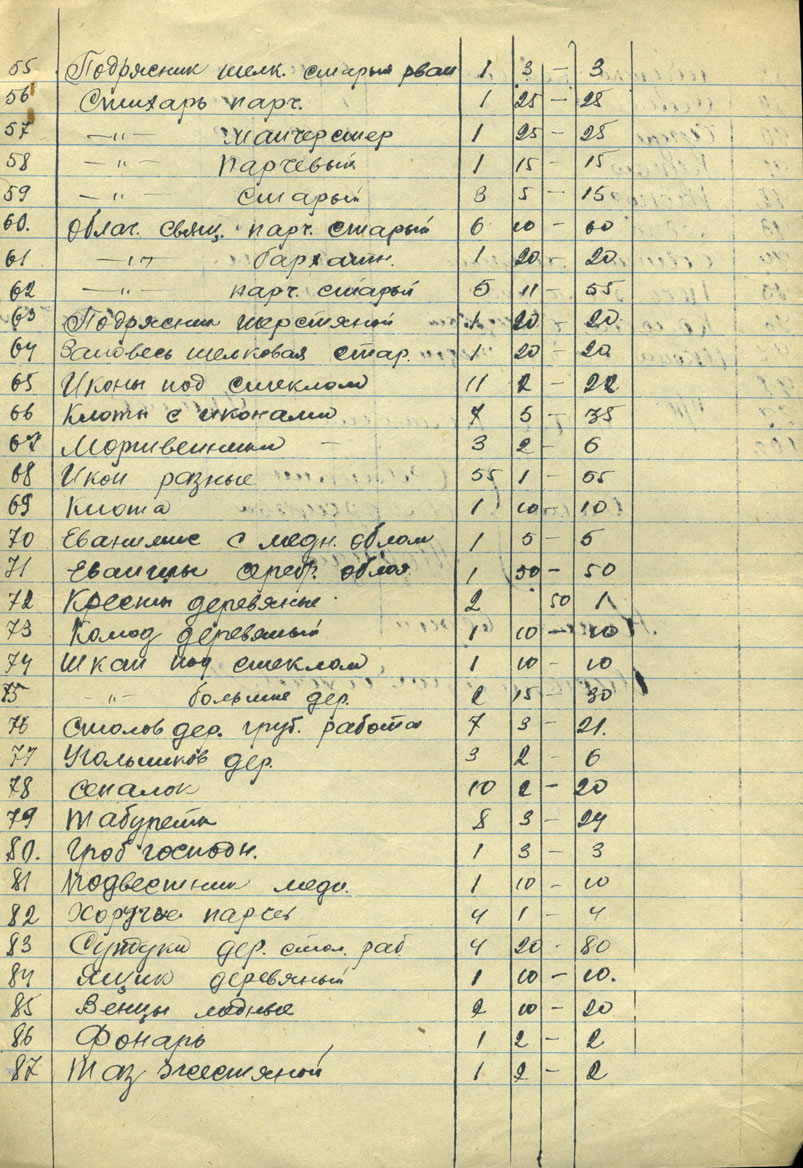 55 Подрясник шелк. старый рван 1 3 – 3
56 Стихарь парч. 1 25 – 25
57 –"– манчерстер 1 25 – 25
58 –"– парчевый 1 15 – 15
59 –"– старый 3 5 – 15
60. Облач. свящ. парч. старый 6 10 – 60
61 –"– бархатн. 1 20 – 20
62 –"– парч. старый 5 11 – 55
63 Подрясник шерстяной 1 20 – 20
64 Зановесь шелковая стар. 1 20 – 20
65 Иконы под стеклом 11 2 – 22
66 Киоты с иконами 7 5 – 35
67 – 3 2 – 6
68 Икон разные 55 1 – 55
69 Киота 1 10 – 10
70 с медн. облом 1 5 – 5
71 серебр. 1 50 – 50
72 Кресты деревяные 2 50 1
73 Комод деревяный 1 10 – 10
74 Шкап под стеклом 1 10 – 10
75 –"– больше дер. 2 15 – 30
76 Столов дер. груб. работа 7 3 – 21.
77 Угольников дер. 3 2 – 6
78 10 2 – 20
79 Табуретк 8 3 – 24
80. Гроб господн. 1 3 – 3
81 медн. 1 10 – 10
82 4 1 – 4
83 дер. стол. раб. 4 20 – 80
84 Ящик деревяный 1 10 – 10.
85 Венцы медные 2 10 – 20
86 Фонарь 1 2 – 2
87 Таз жестяной 1 2 – 2